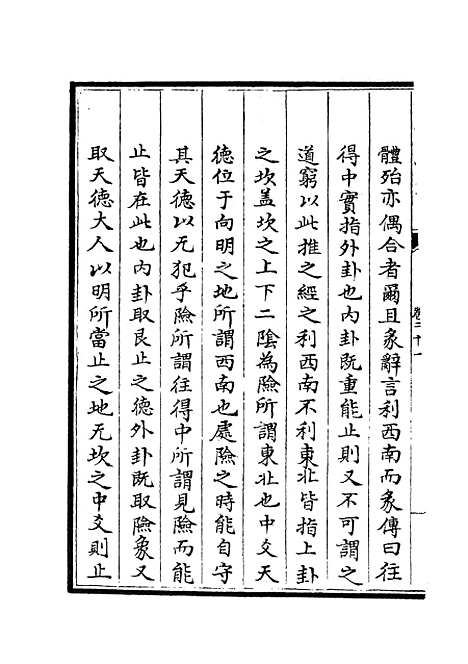 卷二十一
體殆亦偶合者爾且彖辭言利西南而彖傳曰往
得中實指外卦也内卦既重能止則又不可謂之
道窮以此推之經之利西南不利東北皆指上卦
之坎蓋坎之上下二陰為險所謂東北也中爻天
德位于向明之地所謂西南也處險之時能自守
其天德以无犯乎險所謂往得中所謂見險而能
止皆在此也内卦取艮止之德外卦既取險象又
取天德大人以明所當止之地无坎之中爻則止